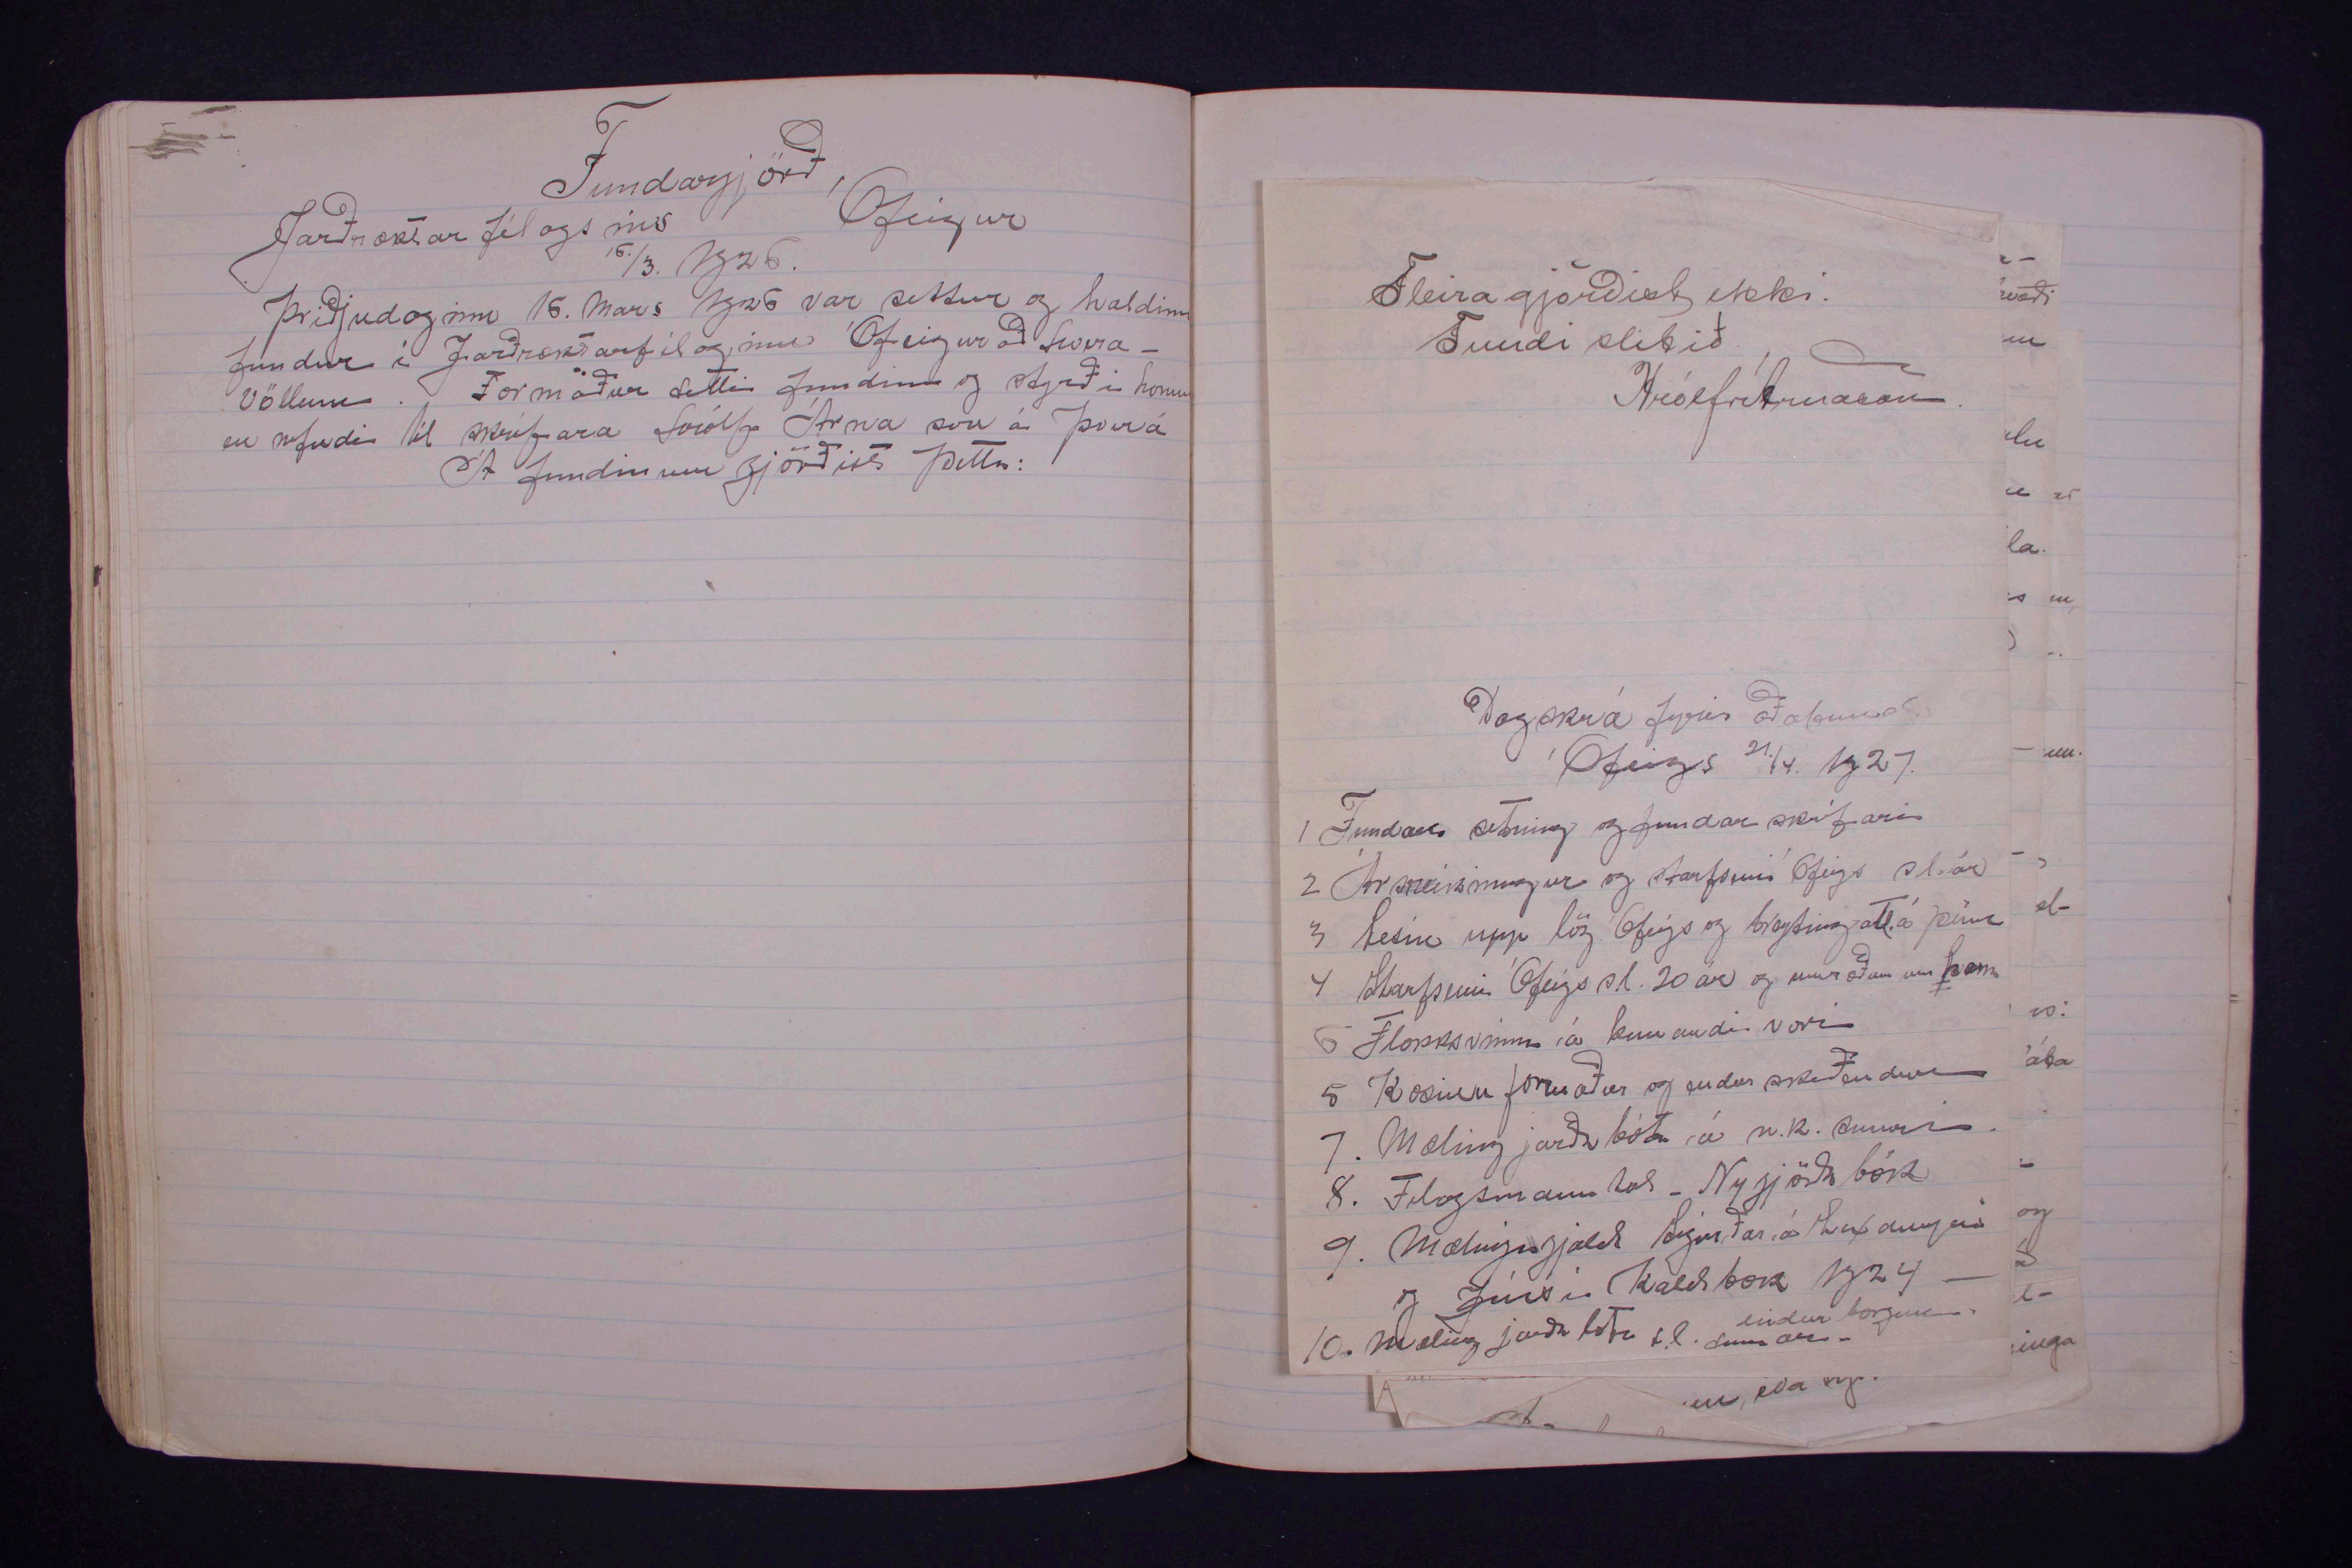 Fundargjörð,
Jarðræktarfélagsins Ófeigur
16/3. 1926.
Þriðjudaginn 16. Mars 1926 var settur og haldinn
fundur í Jarðræktarfélaginu Ófeigur að Hvera-
völlum. Formaður setti fundinn og stýrði honum
en nefndi til skrifara Hrólf Árnason á Þverá
Á fundinum gjörðist þetta:
Fleira gjörðist ekki.
Fundi slitið
Hrólfr Árnason.
Dagskrá fyrir aðalfund
Ófeigs 21./4. 1927.
1 Fundar setning og fundar skrifari
2 Ársreikningur og starfsemi Ófeigs s.l. ár
3 Lesin upp lög Ófeigs og breyting á þeim
4 Starfsemi Ófeigs s.l. 20 ár og umræður um hana
6 Flokksvinna á komandi vori
5 Kosinn formaður og endurskoðendur
7. Mæling jarðabóta á n.k. sumri.
8. Félagsmannatal - Ný gjörðabók
9. Mælingagjald Sigurðar á
og í Kaldbak 1924 —
endur borgun.
10. Mæling jarðabóta s.l. sumar -